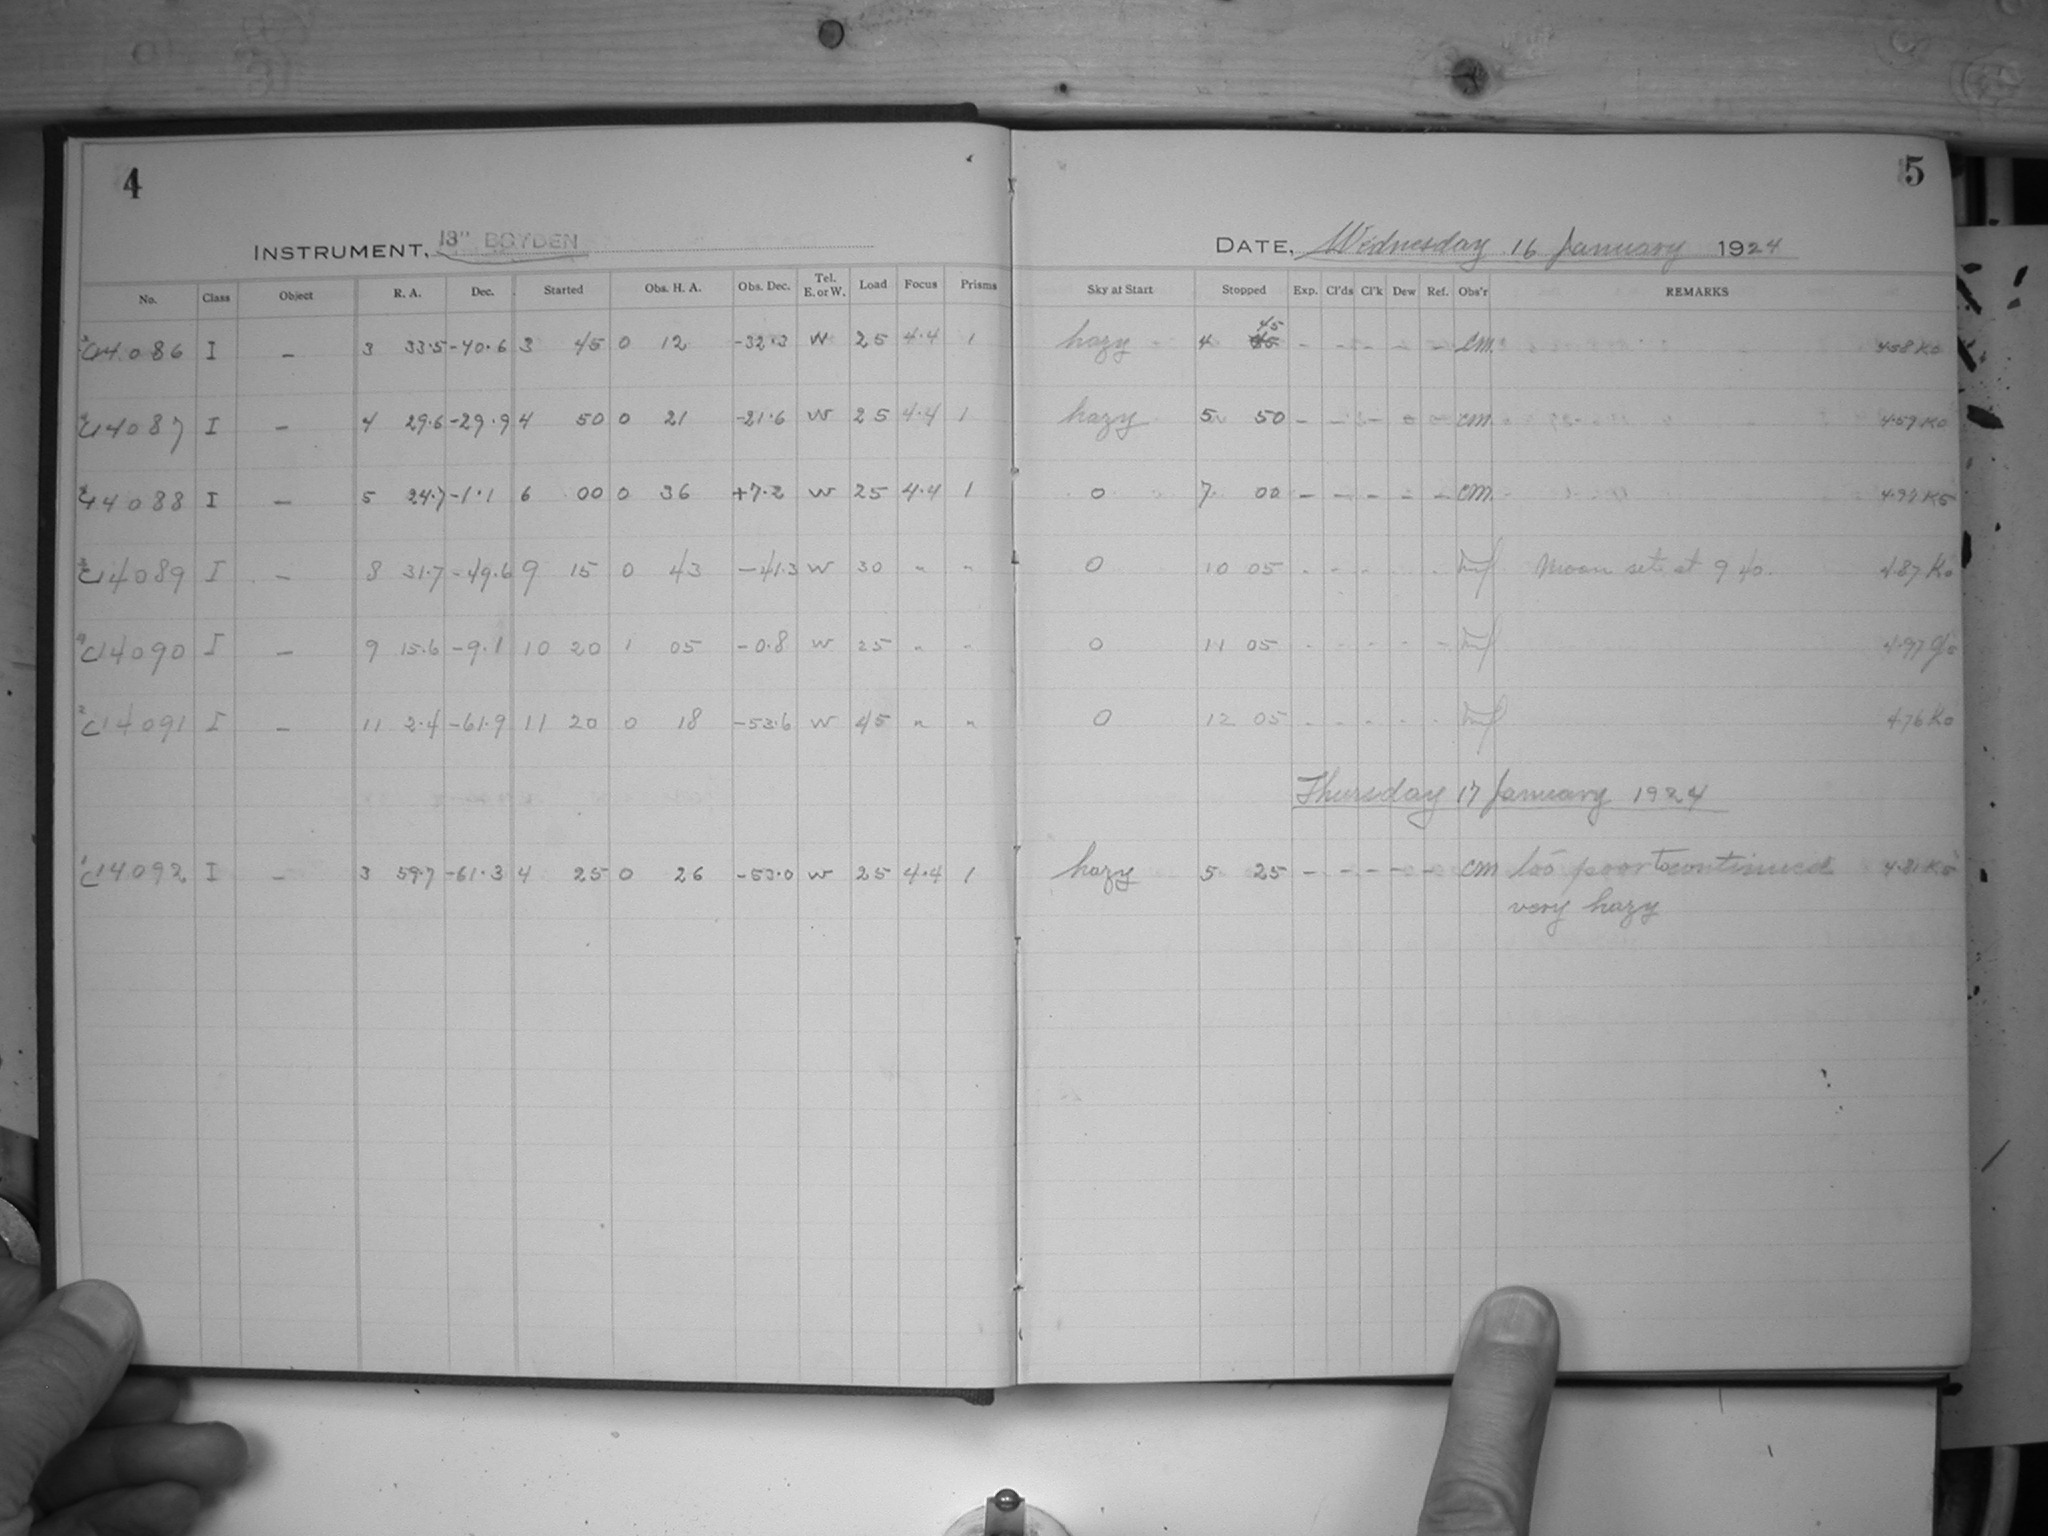 4
5
INSTRUMENT, 13" BOYDEN
DATE, Wednesday 16 January 1924
No. Class Object R. A. Dec. Started Obs. H. A. Obs. Dec. Tel. E. or W. Load Focus Prisms Sky at Start Stopped Exp. Cl'ds Cl'k Dew Ref. Obs'r REMARKS
C14086 I – 3 33.5 -40.6 3 45 0 12 -32.3 W 25 4.4 1 hazy 4 45 - - - - - CM 4.58 K0
C14087 I – 4 29.6 -29.9 4 50 0 21 -21.6 W 25 4.4 1 hazy 5 50 - - - - - CM 4.59 K0
C14088 I – 5 24.7 -1.1 6 00 0 36 +7.2 W 25 4.4 1 0 7 00 - - - - - CM K5
C14089 I – 8 31.7 -49.6 9 15 0 43 -41.3 W 30 " " 0 10 05 - - - - - Moon sets at 9 40. 4.87 K0
C14090 I – 9 15.6 -9.1 10 20 1 05 -0.8 W 25 " " 0 11 05 - - - - - 4.97
C14091 I – 11 2.4 -61.9 11 20 0 18 -53.6 W 45 " " 0 12 05 - - - - - 4.76 K0
Thursday 17 January 1924
C14092 I – 3 59.7 -61.3 4 25 0 26 -53.0 W 25 4.4 1 hazy 5 25 - - - - - CM too poor to continued 4.81 K5
very hazy